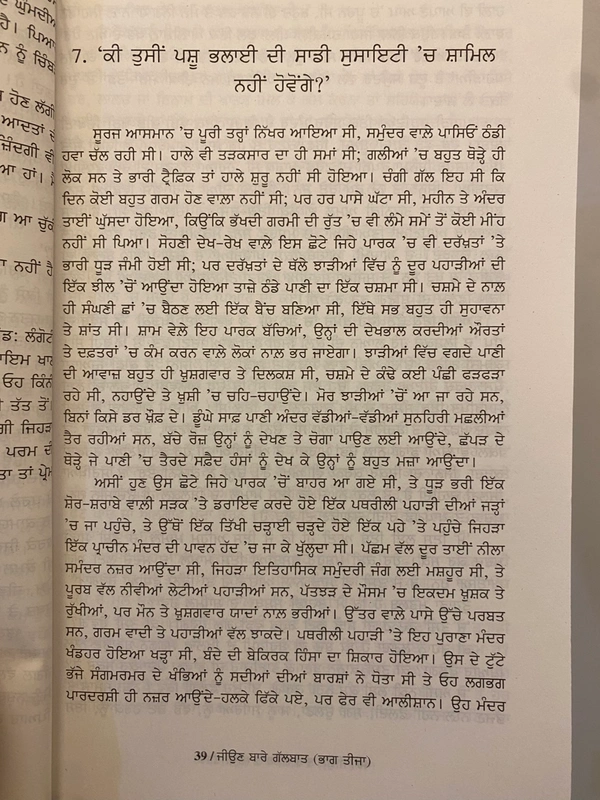 ਘੁੰਮਦੀਆਂ
ਹੈ। ਪਿਆ
ਨ ਨੂੰ ਚਿੰਬ
ਹੋਣ ਲੱਗੀ
ਆਦਤਾਂ ਦ
ਜ਼ਿੰਦਗੀ ਵੀ
ਆ ਹਾਂ। ਮੈਂ
ਗ ਆ ਚੁੱਕ
ਾ ਨਹੀਂ ਹੈ
ਡ: ਲੰਗੋਟੀ
ਾਇਮ ਖਾਲ
ਓਹ ਕਿੰਨੀ
ਤੱਤ ਤੋਂ।
ਗੀ ਜਿਹੜ
ਪਰਮ ਦੀ
ਤਾ ਤਾਂ ਪ੍ਰੇਮ
7. ‘ਕੀ ਤੁਸੀਂ ਪਸ਼ੂ ਭਲਾਈ ਦੀ ਸਾਡੀ ਸੁਸਾਇਟੀ ’ਚ ਸ਼ਾਮਿਲ
ਨਹੀਂ ਹੋਵੋਂਗੇ?’
ਸੂਰਜ ਆਸਮਾਨ ’ਚ ਪੂਰੀ ਤਰ੍ਹਾਂ ਨਿੱਖਰ ਆਇਆ ਸੀ, ਸਮੁੰਦਰ ਵਾਲੇ ਪਾਸਿਓਂ ਠੰਡੀ
ਹਵਾ ਚੱਲ ਰਹੀ ਸੀ। ਹਾਲੇ ਵੀ ਤੜਕਸਾਰ ਦਾ ਹੀ ਸਮਾਂ ਸੀ; ਗਲੀਆਂ ’ਚ ਬਹੁਤ ਥੋੜ੍ਹੇ ਹੀ
ਲੋਕ ਸਨ ਤੇ ਭਾਰੀ ਟ੍ਰੈਫ਼ਿਕ ਤਾਂ ਹਾਲੇ ਸ਼ੁਰੂ ਨਹੀਂ ਸੀ ਹੋਇਆ। ਚੰਗੀ ਗੱਲ ਇਹ ਸੀ ਕਿ
ਦਿਨ ਕੋਈ ਬਹੁਤ ਗਰਮ ਹੋਣ ਵਾਲਾ ਨਹੀਂ ਸੀ; ਪਰ ਹਰ ਪਾਸੇ ਘੱਟਾ ਸੀ, ਮਹੀਨ ਤੇ ਅੰਦਰ
ਤਾਈਂ ਘੁੱਸਦਾ ਹੋਇਆ, ਕਿਉਂਕਿ ਭੱਖਦੀ ਗਰਮੀ ਦੀ ਰੁੱਤ ’ਚ ਵੀ ਲੰਮੇ ਸਮੇਂ ਤੋਂ ਕੋਈ ਮੀਂਹ
ਨਹੀਂ ਸੀ ਪਿਆ। ਸੋਹਣੀ ਦੇਖ-ਰੇਖ ਵਾਲੇ ਇਸ ਛੋਟੇ ਜਿਹੇ ਪਾਰਕ ’ਚ ਵੀ ਦਰੱਖਤਾਂ ’ਤੇ
ਭਾਰੀ ਧੂੜ ਜੰਮੀ ਹੋਈ ਸੀ; ਪਰ ਦਰੱਖਤਾਂ ਦੇ ਥੱਲੇ ਝਾੜੀਆਂ ਵਿੱਚ ਨੂੰ ਦੂਰ ਪਹਾੜੀਆਂ ਦੀ
ਇੱਕ ਝੀਲ ’ਚੋਂ ਆਉਂਦਾ ਹੋਇਆ ਤਾਜ਼ੇ ਠੰਡੇ ਪਾਣੀ ਦਾ ਇੱਕ ਚਸ਼ਮਾ ਸੀ। ਚਸ਼ਮੇ ਦੇ ਨਾਲ
ਹੀ ਸੰਘਣੀ ਛਾਂ ’ਚ ਬੈਠਣ ਲਈ ਇੱਕ ਬੈਂਚ ਬਣਿਆ ਸੀ, ਇੱਥੇ ਸਭ ਬਹੁਤ ਹੀ ਸੁਹਾਵਨਾ
ਤੇ ਸ਼ਾਂਤ ਸੀ। ਸ਼ਾਮ ਵੇਲੇ ਇਹ ਪਾਰਕ ਬੱਚਿਆਂ, ਉਨ੍ਹਾਂ ਦੀ ਦੇਖਭਾਲ ਕਰਦੀਆਂ ਔਰਤਾਂ
ਤੇ ਦਫ਼ਤਰਾਂ ’ਚ ਕੰਮ ਕਰਨ ਵਾਲੇ ਲੋਕਾਂ ਨਾਲ ਭਰ ਜਾਏਗਾ। ਝਾੜੀਆਂ ਵਿੱਚ ਵਗਦੇ ਪਾਣੀ
ਦੀ ਆਵਾਜ਼ ਬਹੁਤ ਹੀ ਖ਼ੁਸ਼ਗਵਾਰ ਤੇ ਦਿਲਕਸ਼ ਸੀ, ਚਸ਼ਮੇ ਦੇ ਕੰਢੇ ਕਈ ਪੰਛੀ ਫੜਫੜਾ
ਰਹੇ ਸੀ, ਨਹਾਉਂਦੇ ਤੇ ਖ਼ੁਸ਼ੀ ’ਚ ਚਹਿ-ਚਹਾਉਂਦੇ। ਮੋਰ ਝਾੜੀਆਂ ’ਚੋਂ ਆ ਜਾ ਰਹੇ ਸਨ,
ਬਿਨਾਂ ਕਿਸੇ ਡਰ ਖ਼ੌਫ਼ ਦੇ। ਡੂੰਘੇ ਸਾਫ਼ ਪਾਣੀ ਅੰਦਰ ਵੱਡੀਆਂ-ਵੱਡੀਆਂ ਸੁਨਹਿਰੀ ਮਛਲੀਆਂ
ਤੈਰ ਰਹੀਆਂ ਸਨ, ਬੱਚੇ ਰੋਜ਼ ਉਨ੍ਹਾਂ ਨੂੰ ਦੇਖਣ ਤੇ ਚੋਗਾ ਪਾਉਣ ਲਈ ਆਉਂਦੇ, ਛੱਪੜ ਦੇ
ਥੋੜ੍ਹੇ ਜੇ ਪਾਣੀ ’ਚ ਤੈਰਦੇ ਸਫ਼ੈਦ ਹੰਸਾਂ ਨੂੰ ਦੇਖ ਕੇ ਉਨ੍ਹਾਂ ਨੂੰ ਬਹੁਤ ਮਜ਼ਾ ਆਉਂਦਾ।
ਅਸੀਂ ਹੁਣ ਉਸ ਛੋਟੇ ਜਿਹੇ ਪਾਰਕ ’ਚੋਂ ਬਾਹਰ ਆ ਗਏ ਸੀ, ਤੇ ਧੂੜ ਭਰੀ ਇੱਕ
ਸ਼ੋਰ-ਸ਼ਰਾਬੇ ਵਾਲੀ ਸੜਕ ’ਤੇ ਡਰਾਇਵ ਕਰਦੇ ਹੋਏ ਇੱਕ ਪਥਰੀਲੀ ਪਹਾੜੀ ਦੀਆਂ ਜੜ੍ਹਾਂ
’ਚ ਜਾ ਪਹੁੰਚੇ, ਤੇ ਉੱਥੋਂ ਇੱਕ ਤਿੱਖੀ ਚੜ੍ਹਾਈ ਚੜ੍ਹਦੇ ਹੋਏ ਇੱਕ ਪਹੇ ’ਤੇ ਪਹੁੰਚੇ ਜਿਹੜਾ
ਇੱਕ ਪ੍ਰਾਚੀਨ ਮੰਦਰ ਦੀ ਪਾਵਨ ਹੱਦ ’ਚ ਜਾ ਕੇ ਖੁੱਲ੍ਹਦਾ ਸੀ। ਪੱਛਮ ਵੱਲ ਦੂਰ ਤਾਈਂ ਨੀਲਾ
ਸਮੰਦਰ ਨਜ਼ਰ ਆਉਂਦਾ ਸੀ, ਜਿਹੜਾ ਇਤਿਹਾਸਿਕ ਸਮੁੰਦਰੀ ਜੰਗ ਲਈ ਮਸ਼ਹੂਰ ਸੀ, ਤੇ
ਪੂਰਬ ਵੱਲ ਨੀਵੀਂਆਂ ਲੇਟੀਆਂ ਪਹਾੜੀਆਂ ਸਨ, ਪੱਤਝੜ ਦੇ ਮੌਸਮ ’ਚ ਇਕਦਮ ਖ਼ੁਸ਼ਕ ਤੇ
ਰੁੱਖੀਆਂ, ਪਰ ਮੌਨ ਤੇ ਖ਼ੁਸ਼ਗਵਾਰ ਯਾਦਾਂ ਨਾਲ ਭਰੀਆਂ। ਉੱਤਰ ਵਾਲੇ ਪਾਸੇ ਉੱਚੇ ਪਰਬਤ
ਸਨ, ਗਰਮ ਵਾਦੀ ਤੇ ਪਹਾੜੀਆਂ ਵੱਲ ਝਾਕਦੇ। ਪਥਰੀਲੀ ਪਹਾੜੀ ’ਤੇ ਇਹ ਪੁਰਾਣਾ ਮੰਦਰ
ਖੰਡਹਰ ਹੋਇਆ ਖੜ੍ਹਾ ਸੀ, ਬੰਦੇ ਦੀ ਬੇਕਿਰਕ ਹਿੰਸਾ ਦਾ ਸ਼ਿਕਾਰ ਹੋਇਆ। ਉਸ ਦੇ ਟੁੱਟੇ
ਭੱਜੇ ਸੰਗਮਰਮਰ ਦੇ ਖੰਭਿਆਂ ਨੂੰ ਸਦੀਆਂ ਦੀਆਂ ਬਾਰਸ਼ਾਂ ਨੇ ਧੋਤਾ ਸੀ ਤੇ ਓਹ ਲਗਭਗ
ਪਾਰਦਰਸ਼ੀ ਹੀ ਨਜ਼ਰ ਆਉਂਦੇ-ਹਲਕੇ ਫਿੱਕੇ ਪਏ, ਪਰ ਫੇਰ ਵੀ ਆਲੀਸ਼ਾਨ। ਉਹ ਮੰਦਰ
39/ਜੀਉਣ ਬਾਰੇ ਗੱਲਬਾਤ (ਭਾਗ ਤੀਜਾ)